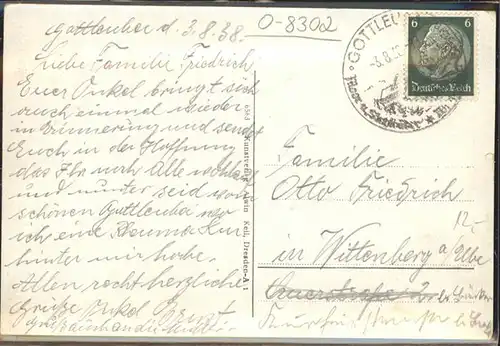 Gottleuba d. 3.8.38.
O-8302
Liebe Familie Friedrich
Euer Onkel bringt sich
auch einmal wieder
in Erinnerung und sendet
Euch in der Hoffnung
das Ihr noch Alle wohlauf
und munter seid vom
schönen Gottleuba wo
ich eine Rheuma Kur
hinter mir habe.
Allen recht herzliche
Grüße Onkel Ernst
GOTTLEU
-3.8.3
Moor u.
6 6
Deutsches Reich
Kunstverlag Alwin Keil, Dresden-A 1
Familie
Otto Friedrich
12,-
in Wittenberg a/Elbe